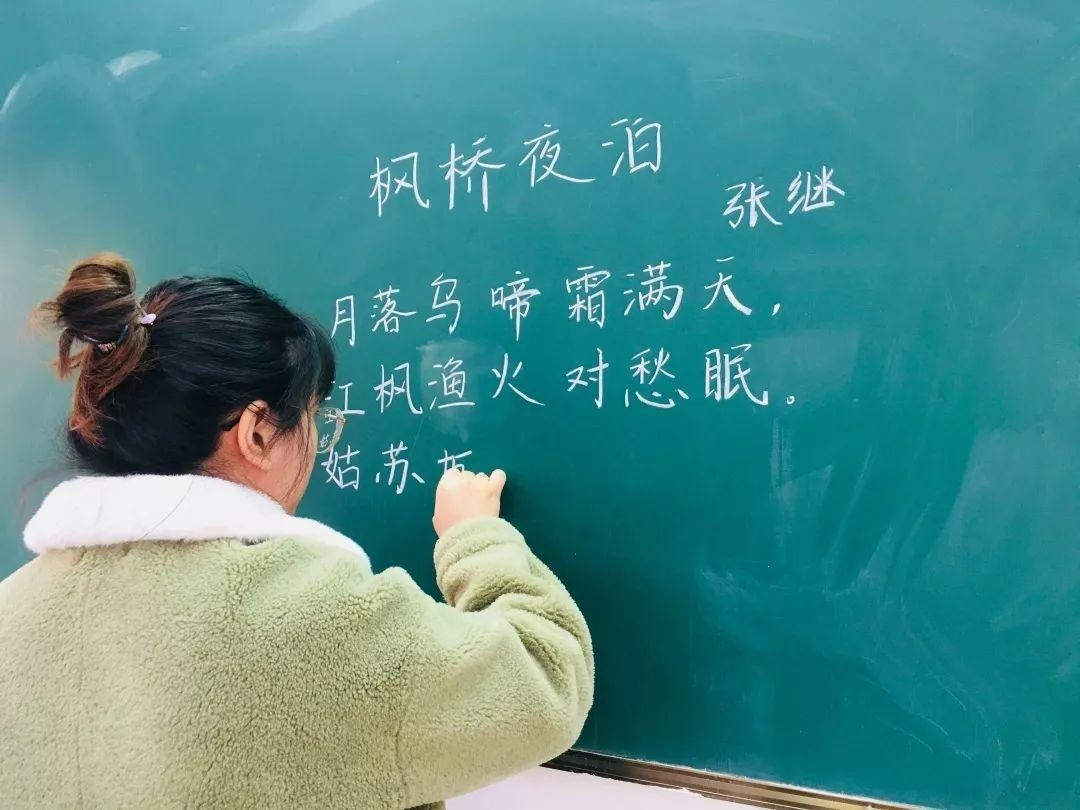 枫桥夜泊
张继
月落乌啼霜满天，
江枫渔火对愁眠。
姑苏